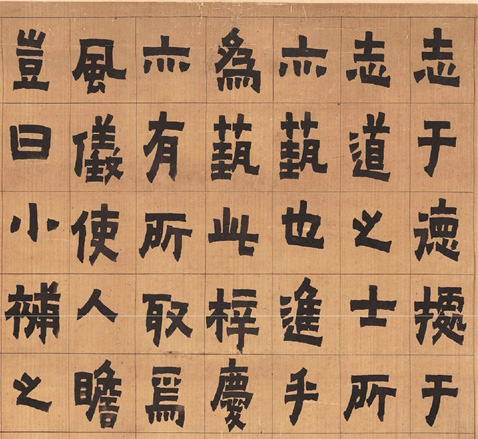 志于德㨿于
志道之士所
亦蓺也進乎
爲蓺此梓慶
亦有所取焉
風儀使人瞻
豈曰小補之